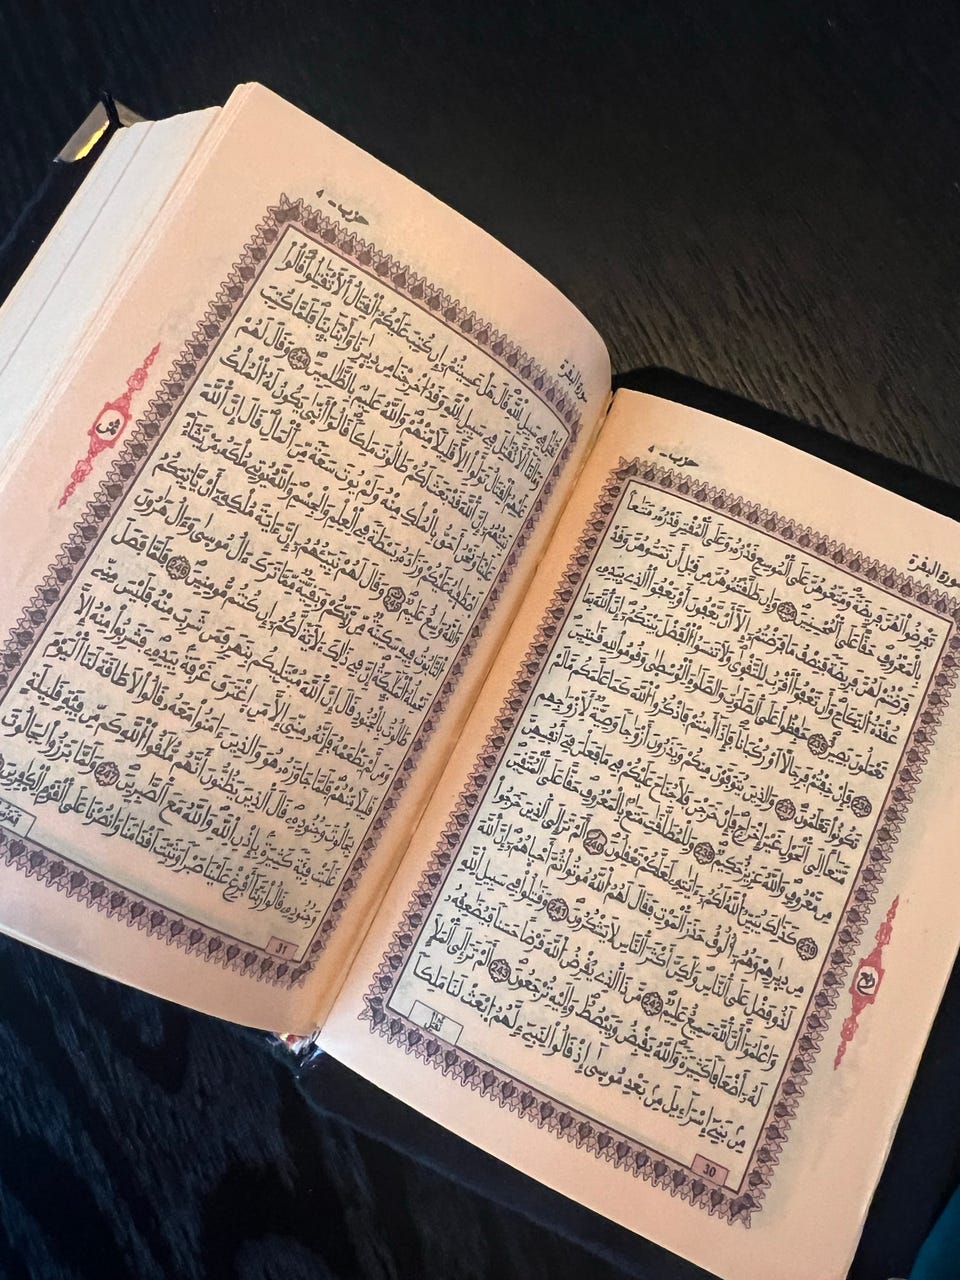 سورة البقرة
حزب - ٤
تَفْرِضُوا۟ لَهُنَّ فَرِيضَةً وَمَتِّعُوهُنَّ عَلَى ٱلْمُوسِعِ قَدْرُهُۥ وَعَلَى ٱلْمُقْتِرِ قَدْرُهُۥ مَتَٰعاً
بِالْمَعْرُوفِ حَقّاً عَلَى ٱلْمُحْسِنِينَ 234 وَإِن طَلَّقْتُمُوهُنَّ مِن قَبْلِ أَن تَمَسُّوهُنَّ وَقَدْ
فَرَضْتُمْ لَهُنَّ فَرِيضَةً فَنِصْفُ مَا فَرَضْتُمْ إِلَّا أَنْ يَّعْفُونَ أَوْ يَعْفُوَا۟ ٱلذِے بِيَدِهِۦ
عُقْدَةُ ٱلنِّكَاحِ وَأَن تَعْفُوٓا۟ أَقْرَبُ لِلتَّقْوٰى وَلَا تَنسَوُا۟ ٱلْفَضْلَ بَيْنَكُمْ إِنَّ ٱللَّهَ بِمَا
تَعْمَلُونَ بَصِيرٌ 235 حَٰفِظُوا۟ عَلَى ٱلصَّلَوَٰتِ وَالصَّلَوٰةِ ٱلْوُسْطٰى وَقُومُوا۟ لِلهِ قَٰنِتِينَ
236 فَإِنْ خِفْتُمْ فَرِجَالاً أَوْ رُكْبَاناً فَإِذَا أَمِنتُمْ فَاذْكُرُوا۟ ٱللَّهَ كَمَا عَلَّمَكُم مَّا لَمْ
تَكُونُوا۟ تَعْلَمُونَ 237 وَالذِينَ يُتَوَفَّوْنَ مِنكُمْ وَيَذَرُونَ أَزْوَٰجاً وَصِيَّةٌ لِّأَزْوَٰجِهِم
مَّتَٰعاً إِلَى ٱلْحَوْلِ غَيْرَ إِخْرَاجٍ فَإِنْ خَرَجْنَ فَلَا جُنَاحَ عَلَيْكُمْ فِے مَا فَعَلْنَ فِے أَنفُسِهِنَّ
مِن مَّعْرُوفٍ وَاللَّهُ عَزِيزٌ حَكِيمٌ 238 وَلِلْمُطَلَّقَٰتِ مَتَٰعٌ بِالْمَعْرُوفِ حَقّاً عَلَى ٱلْمُتَّقِينَ
239 كَذَٰلِكَ يُبَيِّنُ ٱللَّهُ لَكُمْ ءَايَٰتِهِۦ لَعَلَّكُمْ تَعْقِلُونَ 240 أَلَمْ تَرَ إِلَى ٱلذِينَ خَرَجُوا۟
مِن دِيَٰرِهِمْ وَهُمْ أُلُوفٌ حَذَرَ ٱلْمَوْتِ فَقَالَ لَهُمُ ٱللَّهُ مُوتُوا۟ ثُمَّ أَحْيَٰهُمْ إِنَّ ٱللَّهَ
لَذُو فَضْلٍ عَلَى ٱلنَّاسِ وَلَٰكِنَّ أَكْثَرَ ٱلنَّاسِ لَا يَشْكُرُونَ 241 وَقَٰتِلُوا۟ فِے سَبِيلِ ٱللَّهِ
وَاعْلَمُوٓا۟ أَنَّ ٱللَّهَ سَمِيعٌ عَلِيمٌ 242 مَّن ذَا ٱلذِے يُقْرِضُ ٱللَّهَ قَرْضاً حَسَناً فَيُضَٰعِفُهُۥ
لَهُۥٓ أَضْعَافاً كَثِيرَةً وَاللَّهُ يَقْبِضُ وَيَبْصُطُ وَإِلَيْهِ تُرْجَعُونَ 243 أَلَمْ تَرَ إِلَى ٱلْمَلَإِ
مِن بَنِےٓ إِسْرَآءِيلَ مِن بَعْدِ مُوسَىٰٓ إِذْ قَالُوا۟ لِنَبِےٓءٍ لَّهُمُ ٱبْعَثْ لَنَا مَلِكاً
30
سورة البقرة
حزب - ٤
نُّقَٰتِلْ فِے سَبِيلِ ٱللَّهِ قَالَ هَلْ عَسِيتُمْ إِن كُتِبَ عَلَيْكُمُ ٱلْقِتَالُ أَلَّا تُقَٰتِلُوا۟ قَالُوا۟
وَمَا لَنَا أَلَّا نُقَٰتِلَ فِے سَبِيلِ ٱللَّهِ وَقَدُ ا۟خْرِجْنَا مِن دِيَٰرِنَا وَأَبْنَآئِنَا فَلَمَّا كُتِبَ
عَلَيْهِمُ ٱلْقِتَالُ تَوَلَّوِا۟ ا۟لَّا قَلِيلاً مِّنْهُمْ وَاللَّهُ عَلِيمٌ بِالظَّٰلِمِينَ 244 وَقَالَ لَهُمْ
نَبِيٓئُهُمُ إِنَّ ٱللَّهَ قَدْ بَعَثَ لَكُمْ طَالُوتَ مَلِكاً قَالُوٓا۟ أَنّٰى يَكُونُ لَهُ ٱلْمُلْكُ
عَلَيْنَا وَنَحْنُ أَحَقُّ بِالْمُلْكِ مِنْهُ وَلَمْ يُوتَ سَعَةً مِّنَ ٱلْمَالِ قَالَ إِنَّ ٱللَّهَ
ٱصْطَفَىٰهُ عَلَيْكُمْ وَزَادَهُۥ بَسْطَةً فِے ٱلْعِلْمِ وَالْجِسْمِ وَاللَّهُ يُوتِے مُلْكَهُۥ مَنْ يَّشَآءُ
وَاللَّهُ وَٰسِعٌ عَلِيمٌ 245 وَقَالَ لَهُمْ نَبِيٓئُهُمُ إِنَّ ءَايَةَ مُلْكِهِۦٓ أَنْ يَّاتِيَكُمُ
ٱلتَّابُوتُ فِيهِ سَكِينَةٌ مِّن رَّبِّكُمْ وَبَقِيَّةٌ مِّمَّا تَرَكَ ءَالُ مُوسٰى وَءَالُ هَٰرُونَ
تَحْمِلُهُ ٱلْمَلَٰٓئِكَةُ إِنَّ فِے ذَٰلِكَ لَأٓيَةً لَّكُمُ إِن كُنتُم مُّومِنِينَ 246 فَلَمَّا فَصَلَ
طَالُوتُ بِالْجُنُودِ قَالَ إِنَّ ٱللَّهَ مُبْتَلِيكُم بِنَهَرٍ فَمَن شَرِبَ مِنْهُ فَلَيْسَ مِنِّے
وَمَن لَّمْ يَطْعَمْهُ فَإِنَّهُۥ مِنِّيَ إِلَّا مَنِ ٱغْتَرَفَ غَرْفَةً بِيَدِهِۦ فَشَرِبُوا۟ مِنْهُ إِلَّا
قَلِيلاً مِّنْهُمْ فَلَمَّا جَاوَزَهُۥ هُوَ وَالذِينَ ءَامَنُوا۟ مَعَهُۥ قَالُوا۟ لَا طَاقَةَ لَنَا ٱلْيَوْمَ
بِجَالُوتَ وَجُنُودِهِۦ قَالَ ٱلذِينَ يَظُنُّونَ أَنَّهُم مُّلَٰقُوا۟ ٱللَّهِ كَم مِّن فِئَةٍ قَلِيلَةٍ
غَلَبَتْ فِئَةً كَثِيرَةً بِإِذْنِ ٱللَّهِ وَاللَّهُ مَعَ ٱلصَّٰبِرِينَ 247 وَلَمَّا بَرَزُوا۟ لِجَالُوتَ
وَجُنُودِهِۦ قَالُوا۟ رَبَّنَا أَفْرِغْ عَلَيْنَا صَبْراً وَثَبِّتَ اَقْدَامَنَا وَانصُرْنَا عَلَى ٱلْقَوْمِ ٱلْكَٰفِرِينَ
31